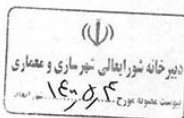 دبیرخانه شورایعالی شهرسازی و معماری
پیوست مصوبه مورخ ۱۴۰۰,۵,۴